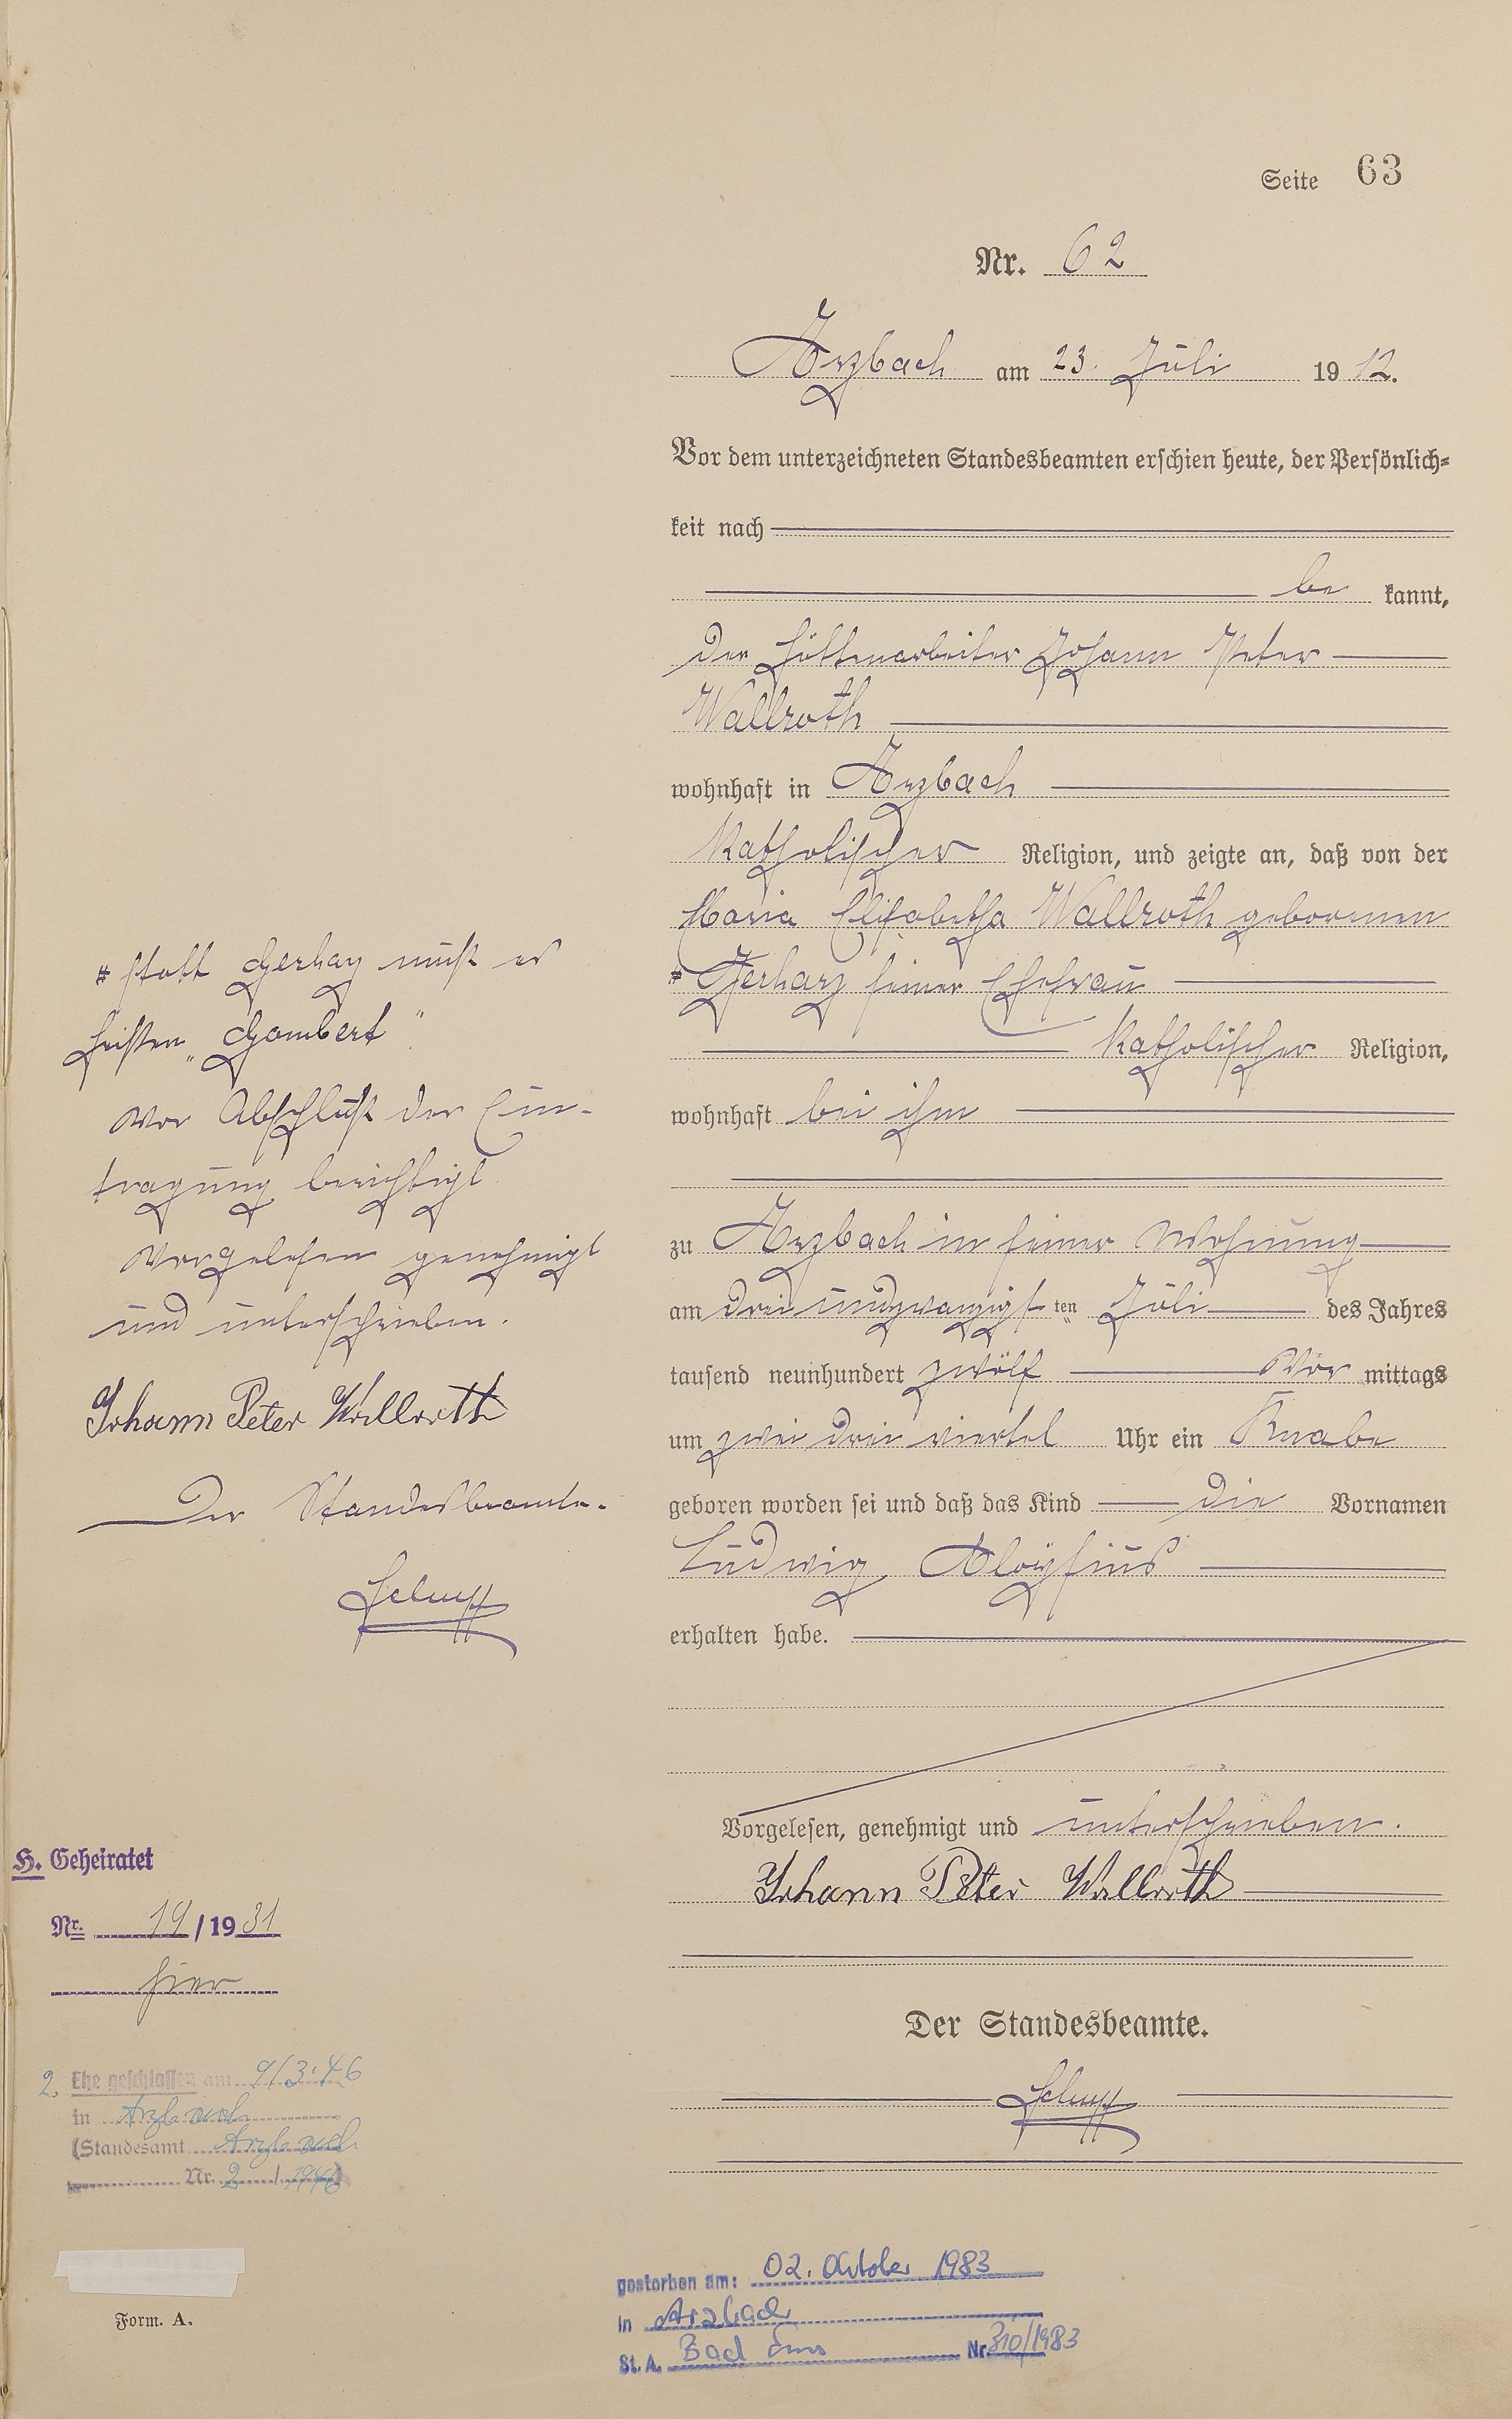 Seite 63
Nr. 62
Arzbach am 23. Juli 1912.
Vor dem unterzeichneten Standesbeamten erschien heute, der Persönlich-
keit nach
be kannt,
der Hüttenarbeiter Johann Peter
Wallroth
wohnhaft in Arzbach
katholischer Religion, und zeigte an, daß von der
Maria Elisabetha Wallroth geborenen
# Gerharz seiner Ehefrau
katholischer Religion,
wohnhaft bei ihm
zu Arzbach in seiner Wohnung
am drei undzwanzigsten Juli des Jahres
tausend neunhundert zwölf Vor mittags
um zwei drei viertel Uhr ein Knabe
geboren worden sei und daß das Kind die Vornamen
Ludwig Aloysius
erhalten habe.
Vorgelesen, genehmigt und unterschrieben.
Johann Peter Wallroth
Der Standesbeamte.
# statt Gerharz muß es
heißen „Gombert"
Vor Abschluß der Ein-
tragung berichtigt
Vorgelesen genehmigt
und unterschrieben.
Johann Peter Wallroth
Der Standesbeamte.
H. Geheiratet
Nr. 19/1931
hier
2. Ehe geschlossen am 9/3.46
in Arzbach
(Standesamt Arzbach
Nr. 2/1946)
Form. A.
gestorben am: 02. Oktober 1983
in Arzbach
St. A. Bad Ems Nr. 310/1983